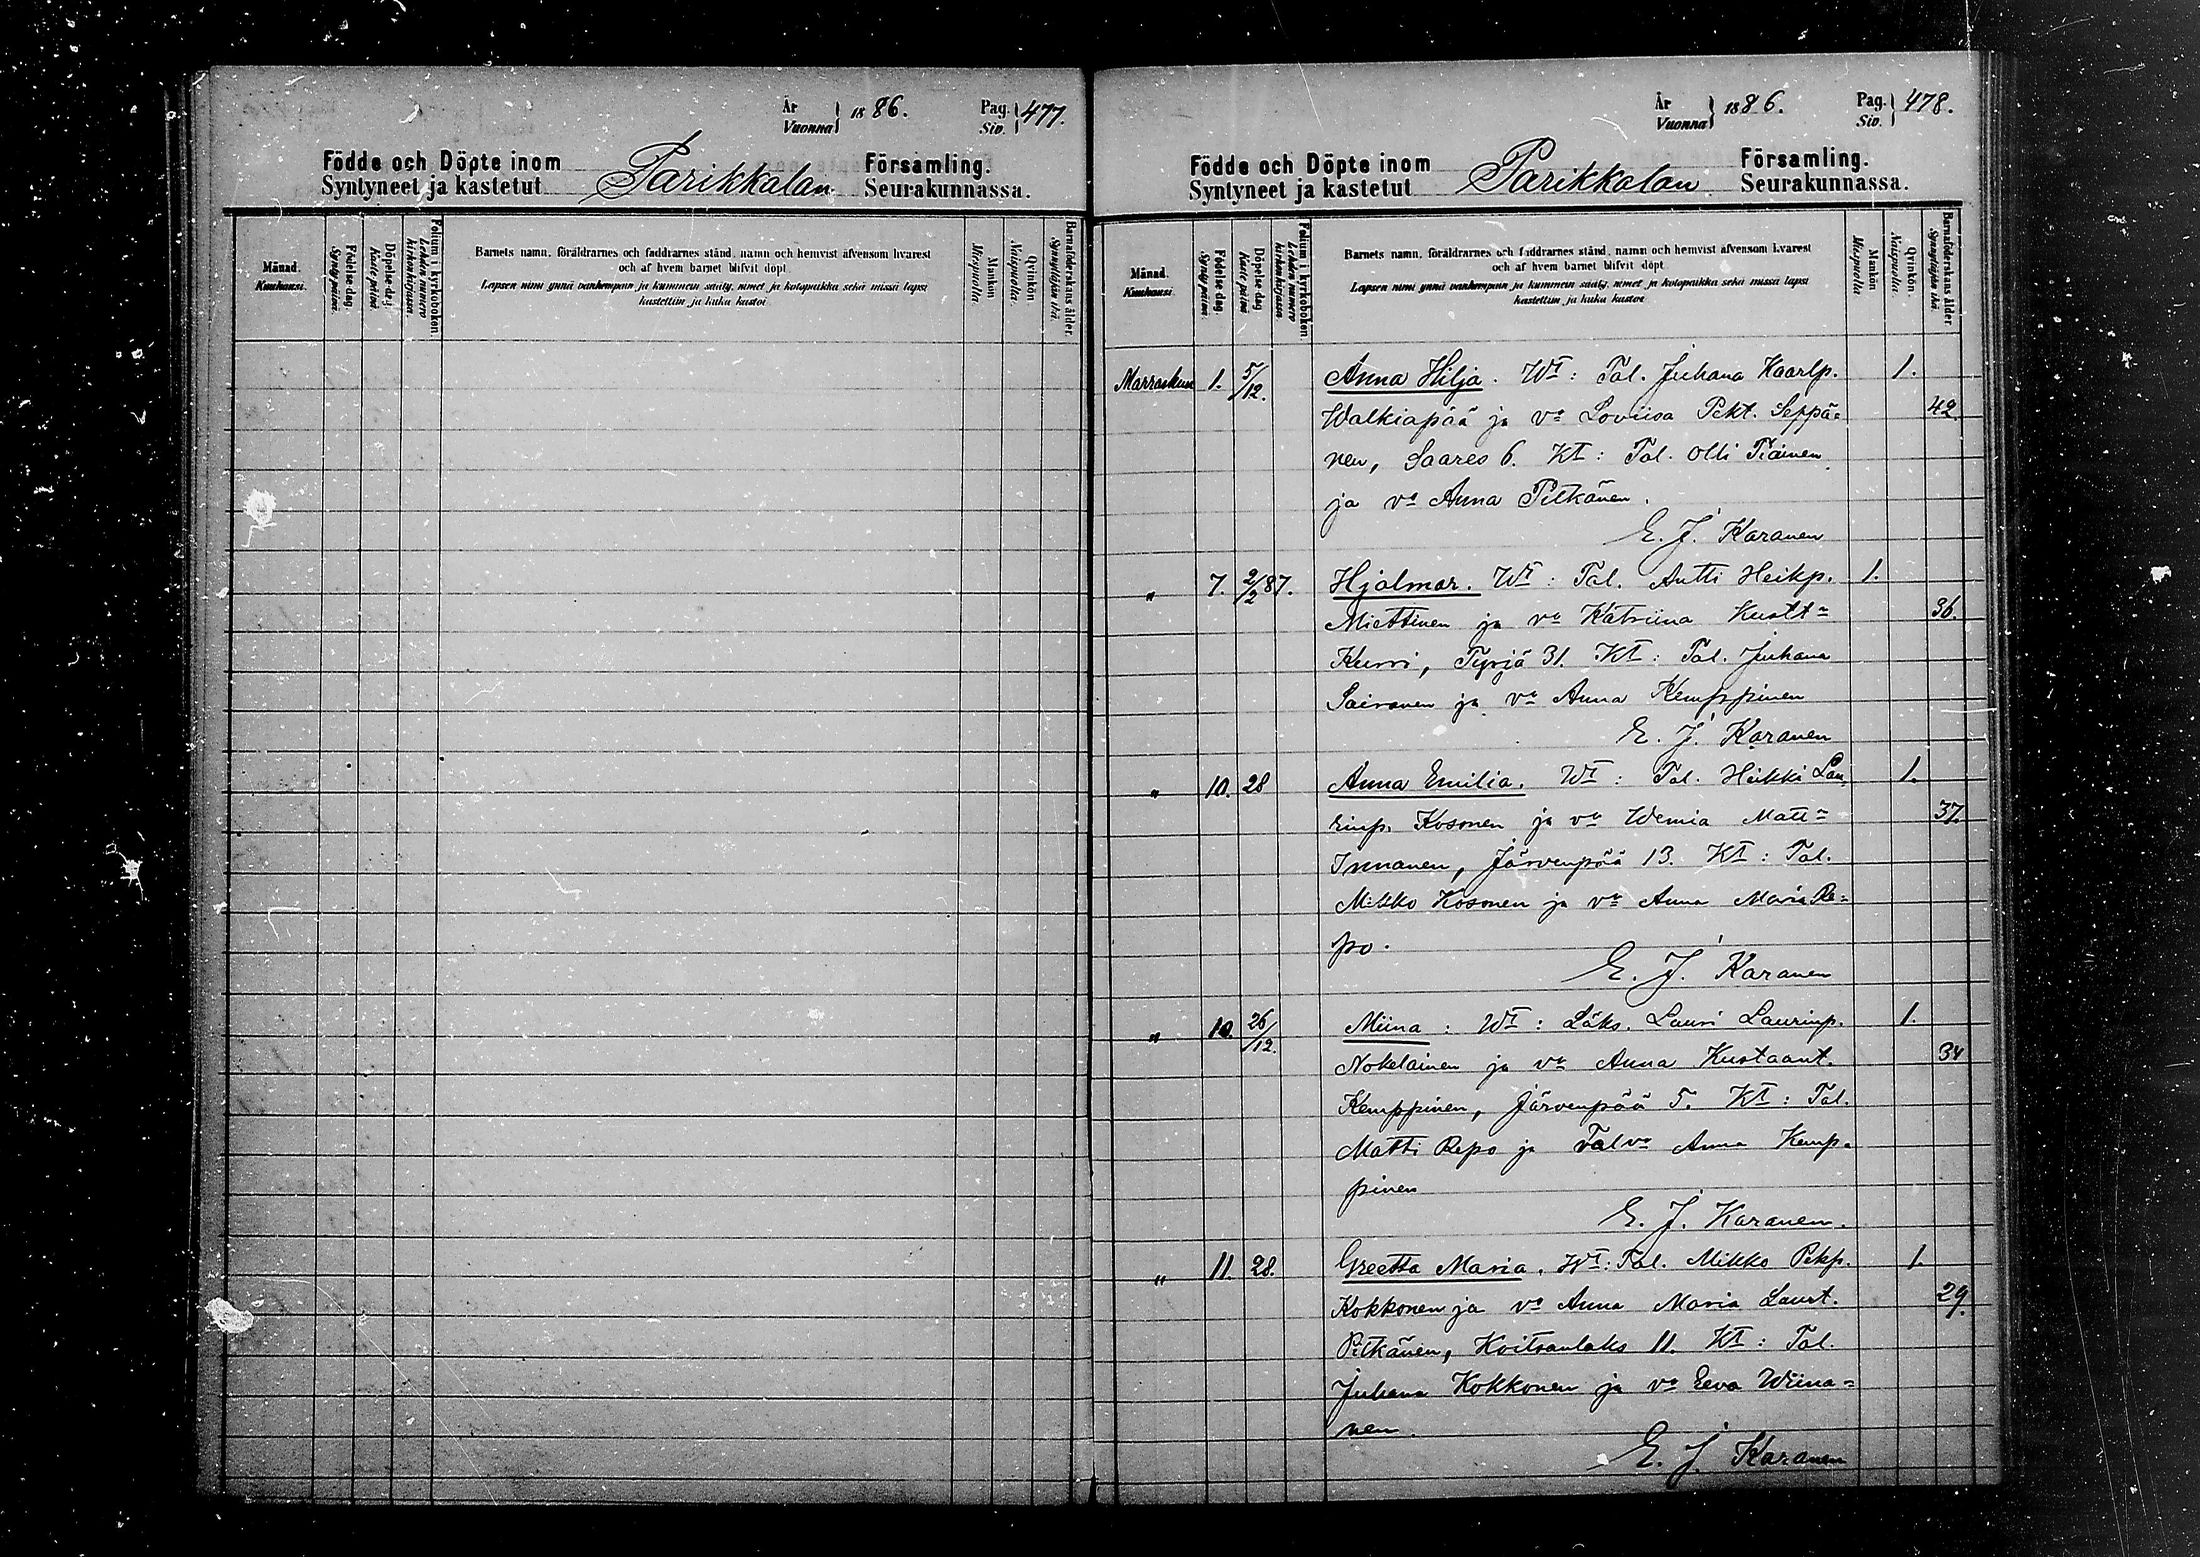 År Vuonna 1886. Pag. Siv. 477.
Födde och Döpte inom Parikkalan Församling.
Syntyneet ja kastetut Seurakunnassa.
Månad. Kuukausi.
Födelse dag. Syntypäivä.
Döpelse dag. Kaste päivä.
Folium i kyrkoboken. Lehden numero kirkonkirjassa.
Barnets namn, föräldrarnes och faddrarnes stånd, namn och hemvist äfvensom hvarest
och af hvem barnet blifvit döpt.
Lapsen nimi ynnä vanhempain ja kummein sääty, nimet ja kotopaikka sekä missä lapsi
kastettiin ja kuka kastoi.
Mankön Miespuolia.
Qvinkön. Naispuolia.
Barnaföderskans ålder. Synnyttäjän ikä.
År Vuonna 1886. Pag. Siv. 478.
Födde och Döpte inom Parikkalan Församling.
Syntyneet ja kastetut Seurakunnassa.
Månad. Kuukausi.
Födelse dag. Syntypäivä.
Döpelse dag Kaste päivä
Folium i kyrkoboken. Lehden numero kirkonkirjassa.
Barnets namn, föräldrarnes och faddrarnes stånd, namn och hemvist äfvensom hvarest
och af hvem barnet blifvit döpt
Lapsen nimi ynnä vanhempain ja kummein sääty, nimet ja kotopaikka sekä missä lapsi
kastettiin ja kuka kastoi.
Mankön Miespuolia
Qvinkön. Naispuolia.
Barnaföderskans ålder Synnyttäjän ikä.
Marraskuu 1. 5/12. Anna Hilja. Wt: Tal. Juhana Kaarlp. 1.
Walkiapää ja va Loviisa Pekt. Seppä= 42
nen, Saares 6. Kt: Tal. Olli Tiainen
ja va Anna Pitkänen.
E. J. Karanen
" 7. 2/2 87. Hjalmar. Wt: Tal. Antti Heikp. 1.
Miettinen ja va Katriina Kustt= 36.
Kurri, Tyrjä 31. Kt: Tal. Juhana
Sairanen ja va Anna Kemppinen
E. J. Karanen
" 10. 28 Anna Emilia. Wt: Tal. Heikki Lau 1.
rinp. Kosonen ja va Wemia Matt= 37.
Innanen, Järvenpää 13. Kt: Tal.
Mikko Kosonen ja va Anna Maria Re=
po.
E. J. Karanen
" 10. 26/12. Miina: Wt: Läks. Lauri Laurinp. 1.
Nokelainen ja va Anna Kustaant. 34
Kemppinen, Järvenpää 5. Kt: Tal.
Matti Repo ja Talva Anna Kemp=
pinen
E. J. Karanen.
" 11. 28. Greetta Maria. Wt: Tal. Mikko Pekp. 1.
Kokkonen ja va Anna Maria Laurt. 29.
Pitkänen, Koitsanlaks 11. Kt: Tal.
Juhana Kokkonen ja va Eeva Wiina=
nen.
E. J. Karanen